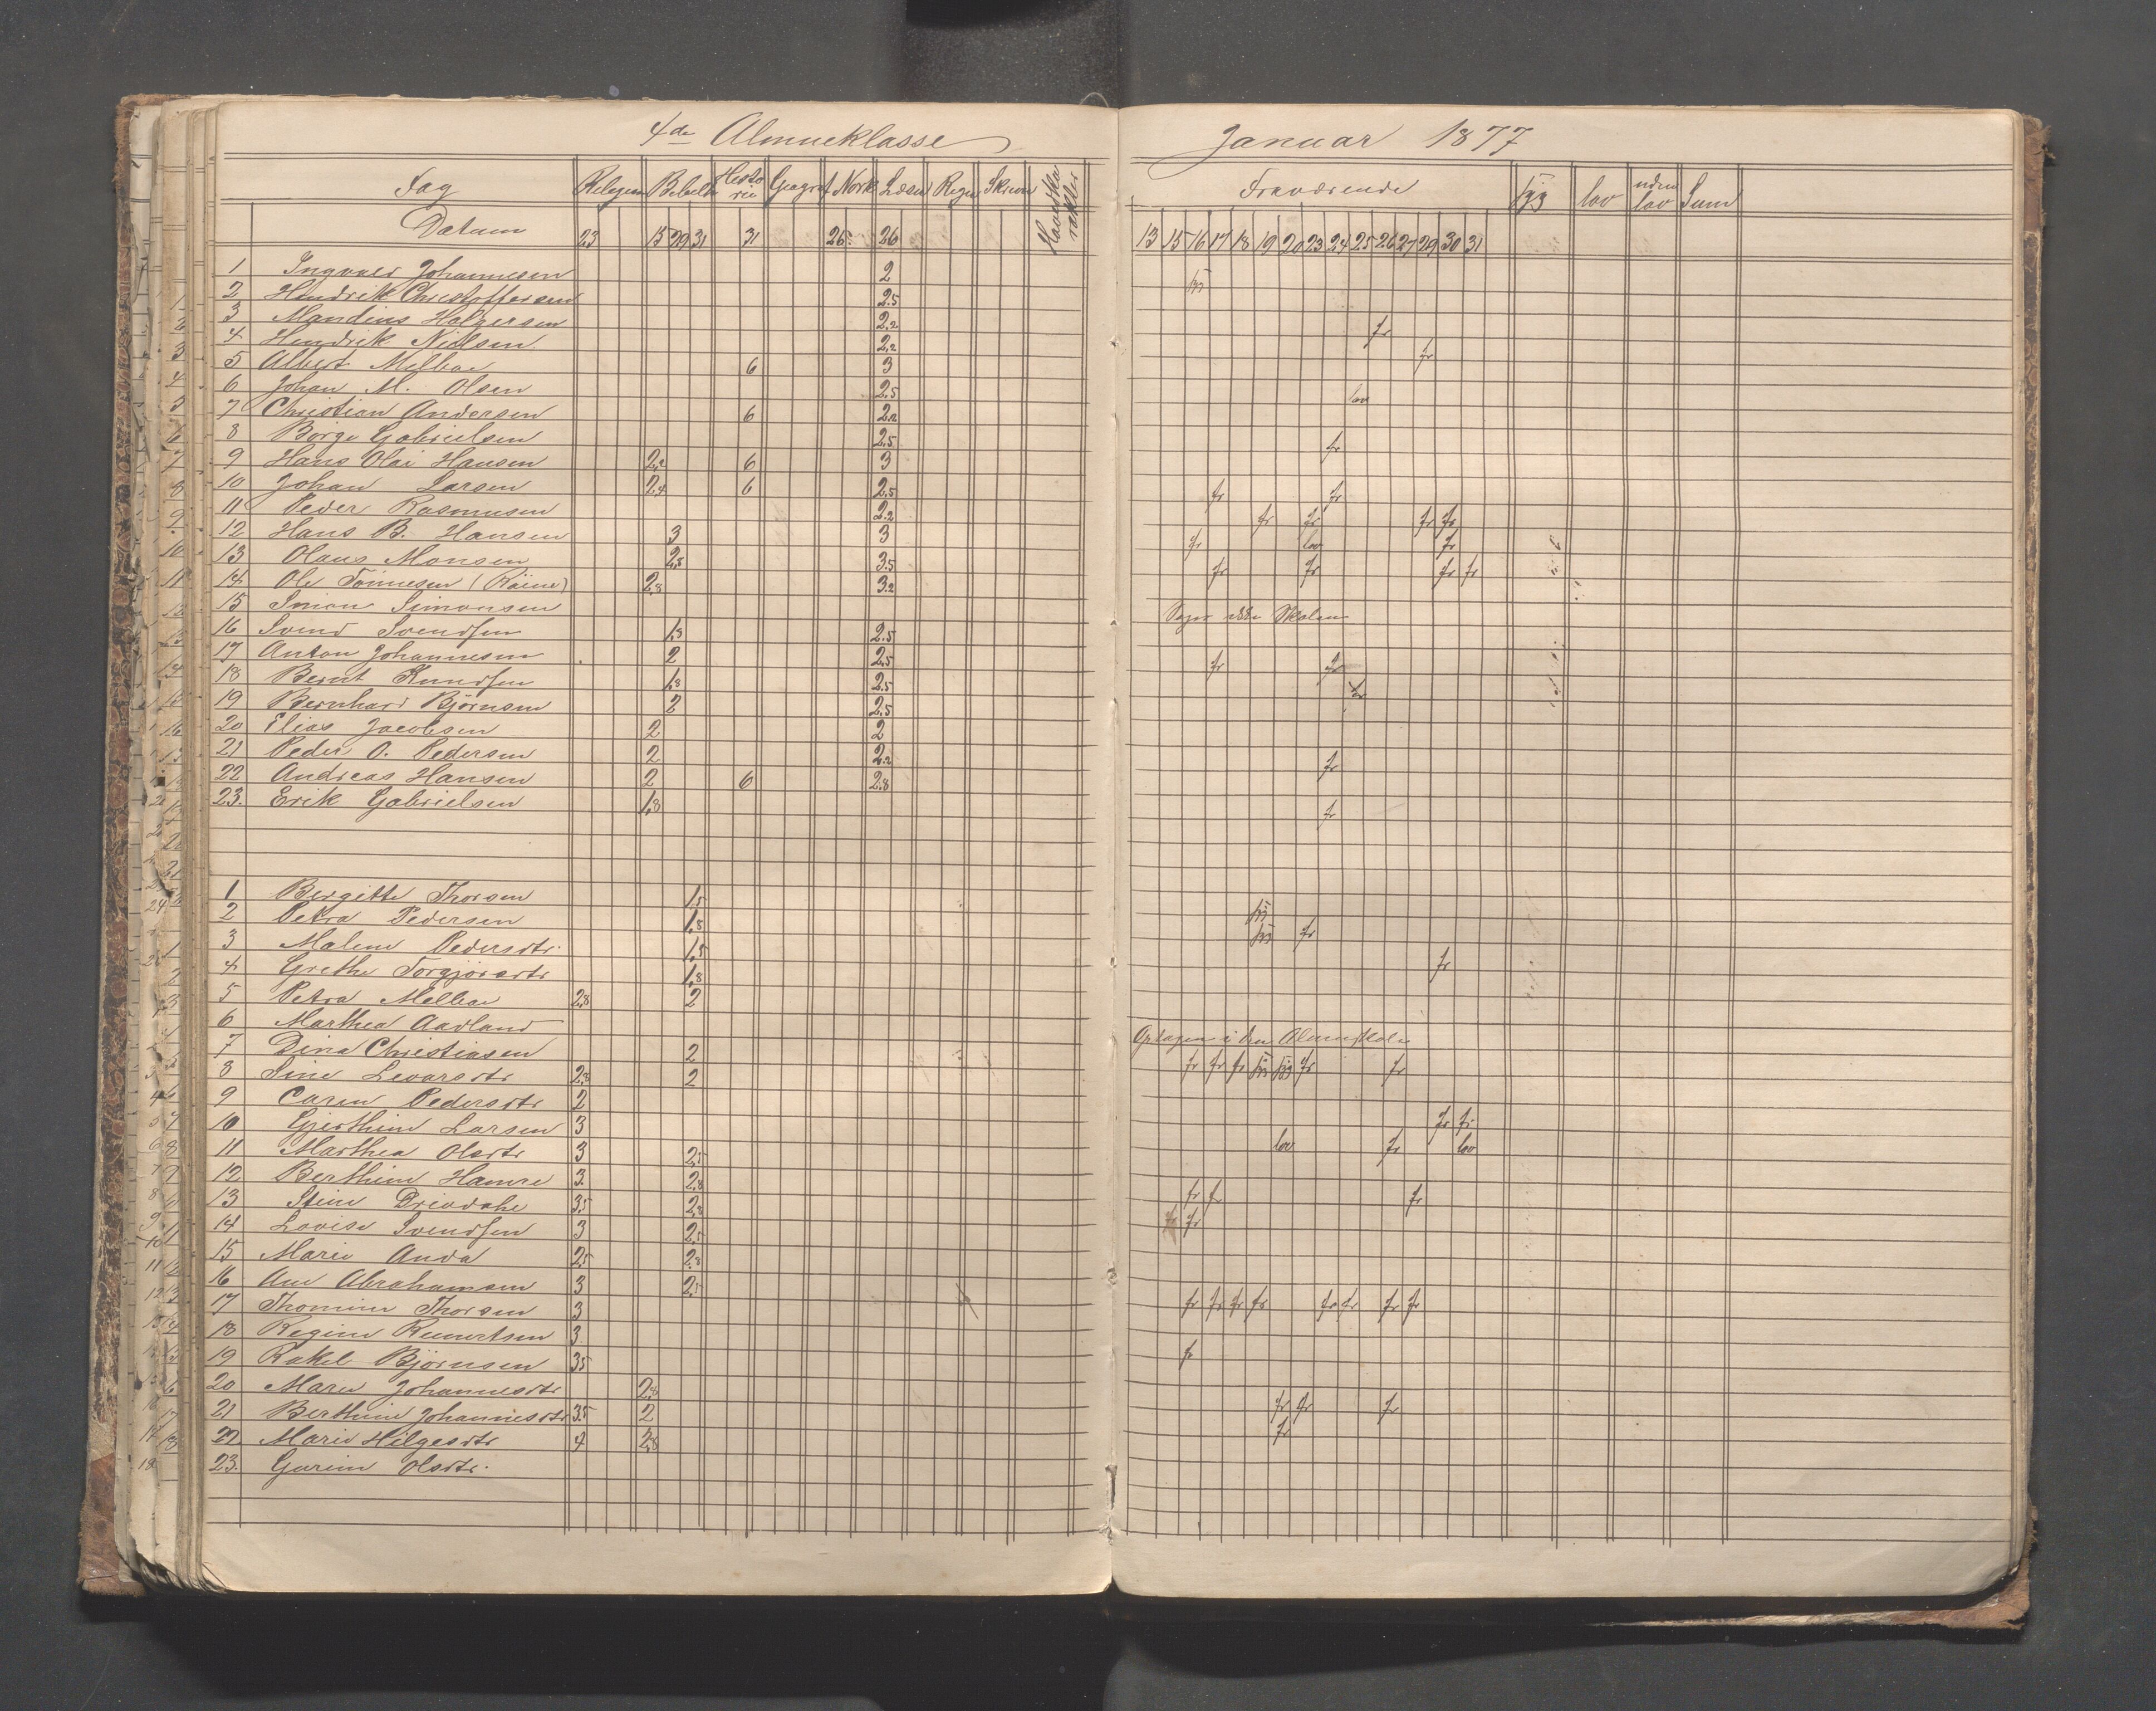 4de Almueklasse
Januar 1877
Fag Religion Bibelh Historie Geograf Norsk Læsn Regn Skrivn Hovedkarakter
Fraværende syg lov uden lov Sum
Datum 23 15 29 31 31 26 26
13 15 16 17 18 19 20 23 24 25 26 27 29 30 31
1 Ingvald Johannesen 2
2 Hendrik Christoffersen 2.5
3 Mandius Holgersen 2.2 fr
4 Hendrik Nielsen 2.2 fr
5 Albert Melbae 6 3
6 Johan M. Olsen 2.5 lov
7 Christian Andersen 6 2.2
8 Børge Gabrielsen 2.5 fr
9 Hans Olai Hansen 2.2 6 3
10 Johan Larsen 2.4 6 2.5 fr fr
11 Peder Rasmusen 2.2 fr fr fr fr
12 Hans B. Hansen 3 3 fr lov fr
13 Olaus Monsen 2.5 3.5 fr fr fr fr
14 Ole Tönnesen (Räine) 2.8 3.2
15 Simon Simonsen
16 Svend Svendsen 1.8 2.5
17 Anton Johannesen 2 2.5 fr fr
18 Bernt Knudsen 1.8 2.5 fr
19 Bernhard Björnsen 2 2.5
20 Elias Jacobsen 2 2
21 Peder O. Pedersen 2 2.2 fr
22 Andreas Hansen 2 6 2.8
23. Erik Gabrielsen 1.8 fr
1 Bergitte Thorsen 1.5
2 Petra Pedersen 1.8 fr
3 Malene Pedersdtr. 1.5 fr
4 Grethe Torgjersdtr 1.8
5 Petra Melbae 2.8 2
6 Marthea Aadland
Optagen i den Almueskole
7 Dina Christiasen 2 fr fr fr syg syg fr fr
8 Sine Levarsdtr 2.8 2
9 Caren Pedersdtr 2 fr fr
10 Gjerthine Larsen 3 lov fr lov
11 Marthea Olsdtr 3 2.5
12 Berthine Hamre 3 2.8 fr fr fr
13 Stine Drivdahe 3.5 2.8 fr
14 Lovise Svendsen 3 2.5
15 Marie Anda 2.5 2.8
16 Ane Abrahamsen 3 2.5 fr fr fr fr fr fr fr fr
17 Thomine Thorsen 3
18 Regine Reinertsen 3 fr
19 Rakel Björnsen 3.5
20 Maren Johannesdtr 2.8 fr fr fr
21 Berthine Johannesdtr 3.5 2 fr
22. Marie Helgesdtr 4 2.8
23. Gurine Olsdtr.